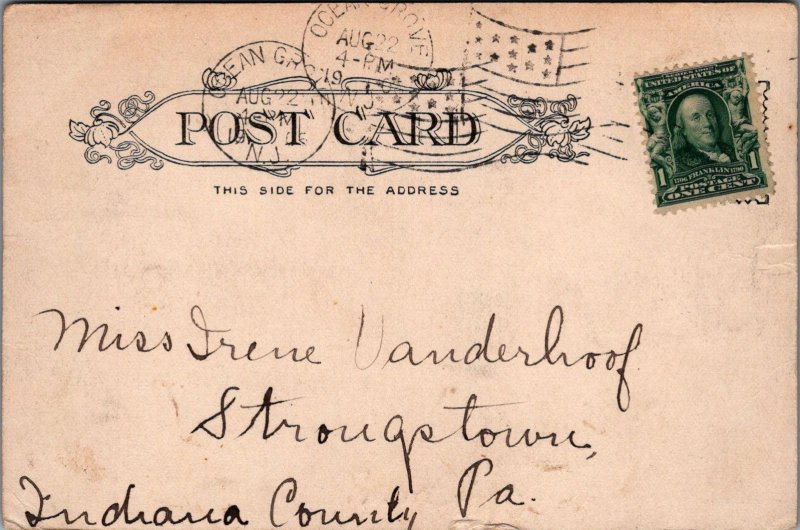 OCEAN GROVE
AUG 22
4-PM
N.J.
OCEAN GROVE
AUG 22
4-PM
19
N.J.
POST CARD
THIS SIDE FOR THE ADDRESS
UNITED STATES OF
AMERICA
1 1
1706 FRANKLIN 1790
POSTAGE
ONE CENT
Miss Irene Vanderhoof
Strongstown,
Indiana County Pa.